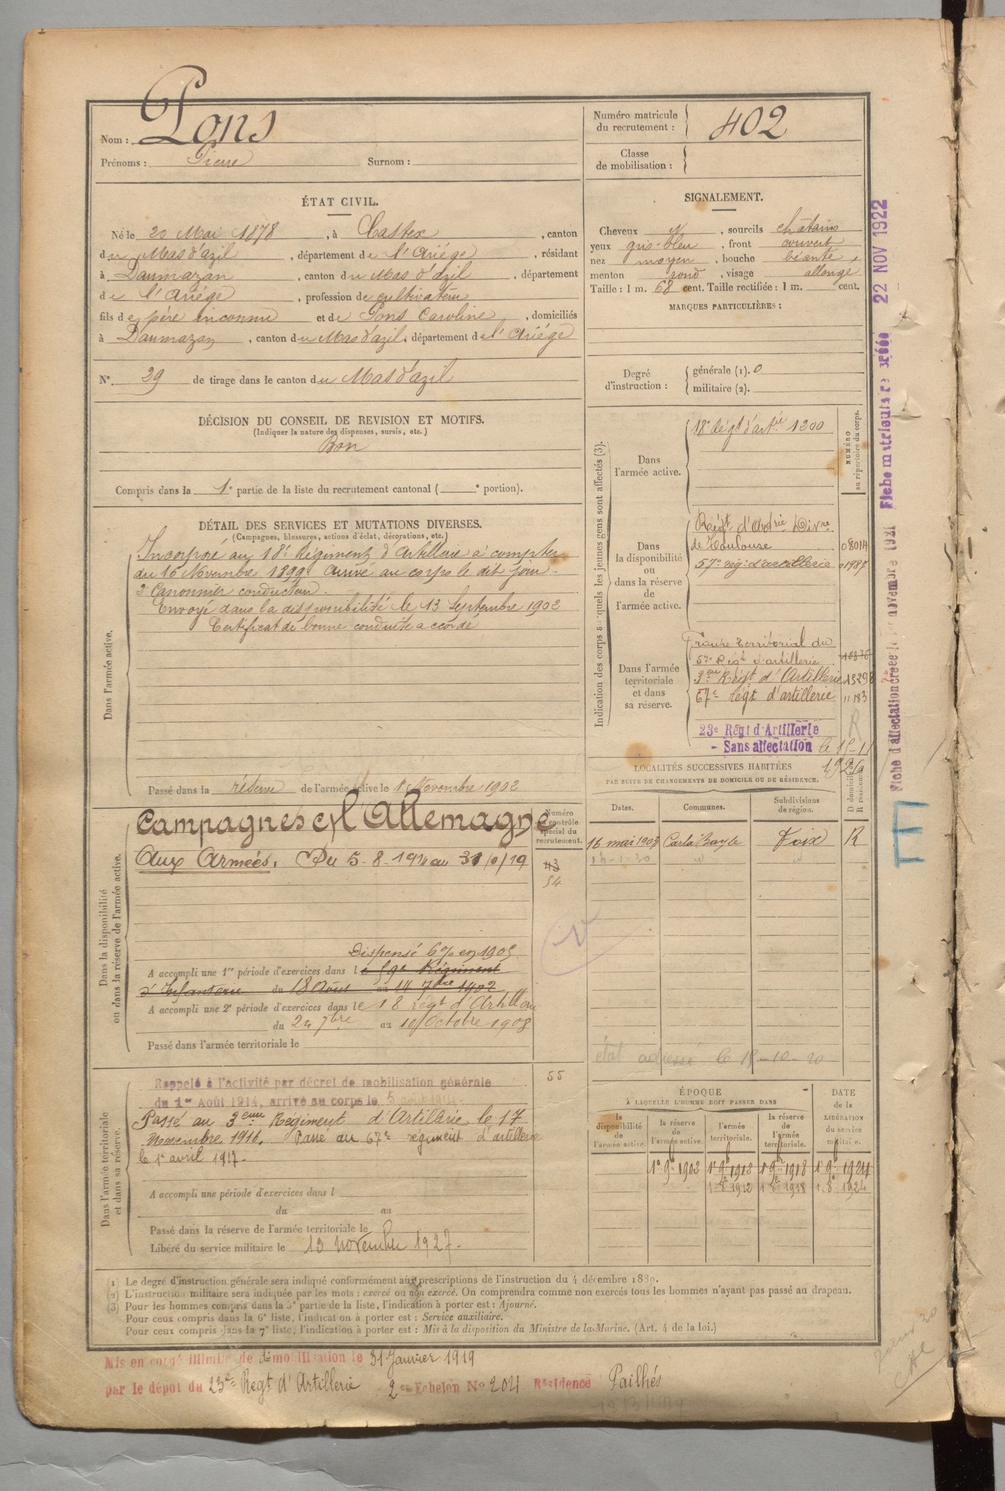 Nom : Pons
Prénoms : Pierre Surnom :
Numéro matricule du recrutement : 402
Classe de mobilisation :
ÉTAT CIVIL.
Né le 20 Mai 1878, à Castex, canton
du Mas d'azil, département de l'Ariége, résidant
à Daumazan, canton du Mas d'azil, département
de l'Ariége, profession de cultivateur
fils de père inconnu et de Pons Caroline, domiciliés
à Daumazan, canton du Mas d'azil, département de l'Ariége
N° 29 de tirage dans le canton du Mas d'azil
SIGNALEMENT.
Cheveux , sourcils châtains
yeux gris-bleu, front couvert
nez moyen, bouche béante,
menton rond, visage allongé
Taille : 1 m. 68 cent. Taille rectifiée : 1 m. cent.
MARQUES PARTICULIÈRES :
Degré d'instruction : générale (1). 0
militaire (2).
DÉCISION DU CONSEIL DE REVISION ET MOTIFS.
(Indiquer la nature des dispenses, sursis, etc.)
Bon
Compris dans la 1e partie de la liste du recrutement cantonal ( e portion).
DÉTAIL DES SERVICES ET MUTATIONS DIVERSES.
(Campagnes, blessures, actions d'éclat, décorations, etc.)
Dans l'armée active.
Incorporé au 18e Régiment d'Artillerie à compter
du 16 Novembre 1899. Arrivé au corps le dit jour.
2e Canonnier conducteur
Envoyé dans la disponibilité le 13 Septembre 1902
Certificat de bonne conduite accordé
Passé dans la réserve de l'armée active le 1 Novembre 1902
Indication des corps auxquels les jeunes gens sont affectés (3).
NUMÉRO au répertoire du corps.
Dans l'armée active.
18e Régt d'artie 1200
Dans la disponibilité ou dans la réserve de l'armée active.
Régt d'Artie Divre
de Toulouse 08014
57e rég. d'artillerie
Dans l'armée territoriale et dans sa réserve.
Groupe territorial du
57e Régt d'artillerie
3eme Régt d'Artillerie
67e Régt d'artillerie 11183
23e Régt d'Artillerie
- Sans affectation
LOCALITÉS SUCCESSIVES HABITÉES
PAR SUITE DE CHANGEMENTS DE DOMICILE OU DE RÉSIDENCE.
Dates. Communes. Subdivisions de région. D domicile R résidence
16 mai 1908 Carla Bayle Foix R
état adressé le 18-10-20
Dans la disponibilité ou dans la réserve de l'armée active.
Numéro au contrôle spécial du recrutement.
Campagnes c/ l'Allemagne
Aux Armées. Du 5-8-1914 au
43
54
Dispensé 6 en 1905
A accompli une 1re période d'exercices dans le 59e Régiment
d'Infanterie du 18 Août au 14 7bre 1902
A accompli une 2e période d'exercices dans le 18 Régt d'Artillerie
du 24 7bre au 10 Octobre 1908
Passé dans l'armée territoriale le
55
Dans l'armée territoriale et dans sa réserve.
Rappelé à l'activité par décret de mobilisation générale
du 1er Août 1914, arrivé au corps le 5
Passé au 3eme Régiment d'Artillerie le 17
Novembre 1916. Passé au 67e régiment d'artillerie
le 1er avril 1917.
A accompli une période d'exercices dans l
du au
Passé dans la réserve de l'armée territoriale le
Libéré du service militaire le 13 novembre 1927.
ÉPOQUE
À LAQUELLE L'HOMME DOIT PASSER DANS
DATE de la LIBÉRATION du service militaire.
la disponibilité de l'armée active. la réserve de l'armée active. l'armée territoriale. la réserve de l'armée territoriale.
1e 9bre 1902 1e 9bre 1912 1e 9bre 1918 1e 9bre 1924
1 8bre 1912 1 8bre 1918 1 8bre 1924
(1) Le degré d'instruction générale sera indiqué conformément aux prescriptions de l'instruction du 4 décembre 1889.
(2) L'instruction militaire sera indiquée par les mots : exercé ou non exercé. On comprendra comme non exercés tous les hommes n'ayant pas passé au drapeau.
(3) Pour les hommes compris dans la 5e partie de la liste, l'indication à porter est : Ajourné.
Pour ceux compris dans la 6e liste, l'indication à porter est : Service auxiliaire.
Pour ceux compris dans la 7e liste, l'indication à porter est : Mis à la disposition du Ministre de la Marine. (Art. 4 de la loi.)
Mis en congé illimité de démobilisation le 31 Janvier 1919
par le dépôt du 23e Régt d'Artillerie 2e Echelon N° 204 Résidence Pailhés
Fiche matricule recréée 22 NOV 1922
Fiche d'affectation créée le novembre 1921